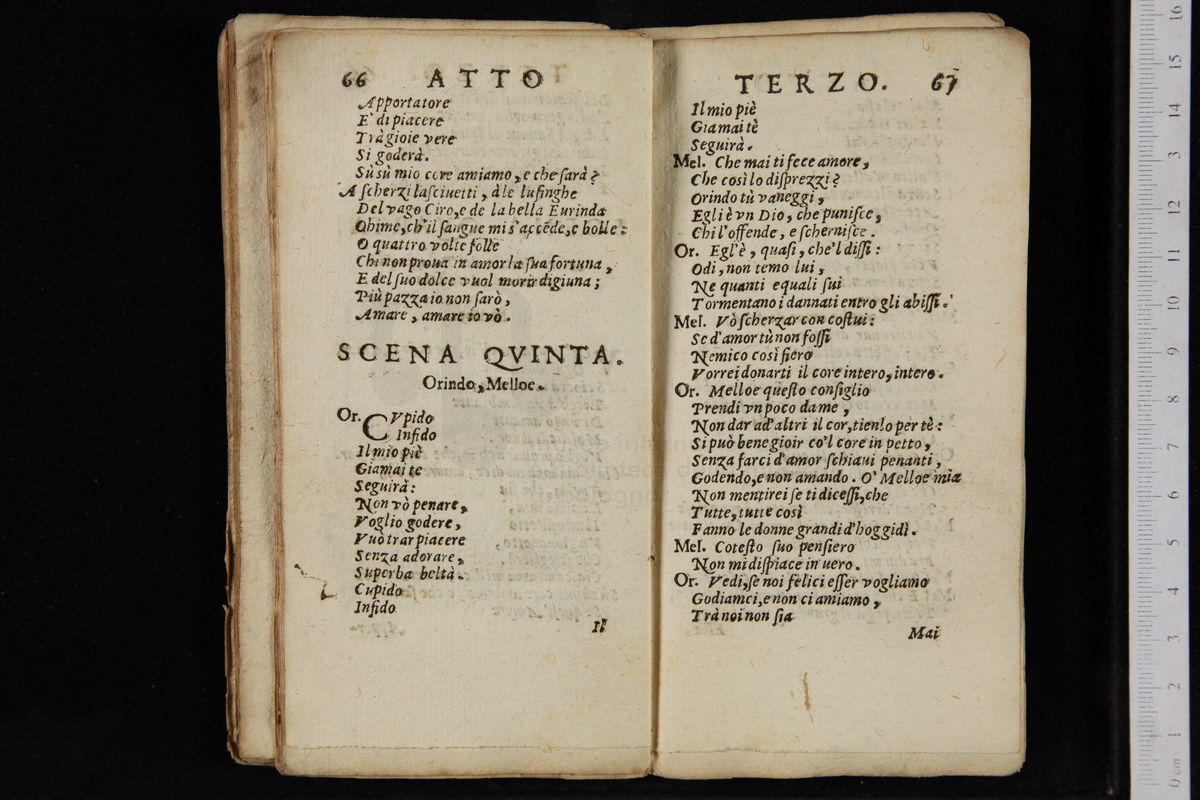 66 ATTO
Apportatore
E' di piacere
Trà gioie vere
Si goderà.
Sù sù mio core amiamo, e che sarà?
A scherzi lasciuetti, à le lusinghe
Del vago Ciro, e de la bella Eurinda
Ohime, ch'il sangue mi s'accēde, e bolle:
O quattro volte folle
Chi non proua in amor la sua fortuna,
E del suo dolce vuol morir digiuna;
Più pazza io non sarò,
Amare, amare io vò.
SCENA QVINTA.
Orindo, Melloe.
Or. CVpido
Infido
Il mio piè
Giamai te
Seguirà:
Non vò penare,
Voglio godere,
Vuò trar piacere
Senza adorare,
Superba beltà.
Cupido
Infido
Il
TERZO. 67
Il mio piè
Giamai tè
Seguirà.
Mel. Che mai ti fece amore,
Che così lo disprezzi?
Orindo tù vaneggi,
Egli è vn Dio, che punisce,
Chi l'offende, e schernisce.
Or. Egl'è, quasi, che'l dissi:
Odi, non temo lui,
Ne quanti equali sui
Tormentano i dannati entro gli abissi.
Mel. Vò scherzar con costui:
Se d'amor tù non fossi
Nemico così fiero
Vorrei donarti il core intero, intero.
Or. Melloe questo consiglio
Prendi vn poco da me,
Non dar ad'altri il cor, tienlo per tè:
Si può bene gioir co'l core in petto,
Senza farci d'amor schiaui penanti,
Godendo, e non amando. O' Melloe mia
Non mentirei se ti dicessi, che
Tutte, tutte così
Fanno le donne grandi d'hoggidì.
Mel. Cotesto suo pensiero
Non mi dispiace in uero.
Or. Vedi, se noi felici esser vogliamo
Godiamci, e non ci amiamo,
Trà noi non sia
Mai
0 cm 1 2 3 4 5 6 7 8 9 10 11 12 13 14 15 16